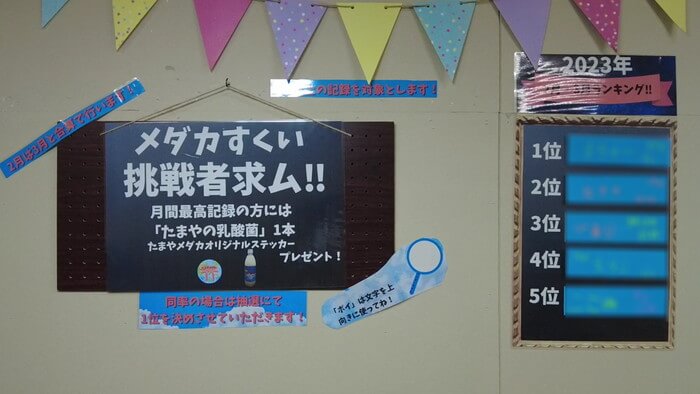 2月は3月と合算で行います！
の記録を対象とします！
メダカすくい
挑戦者求ム!!
月間最高記録の方には
「たまやの乳酸菌」1本
たまやメダカオリジナルステッカー
プレゼント！
同率の場合は抽選にて
1位を決めさせていただきます！
「ポイ」は文字を上
向きに使ってね！
2023年
ランキング!!
1位
2位
3位
4位
5位